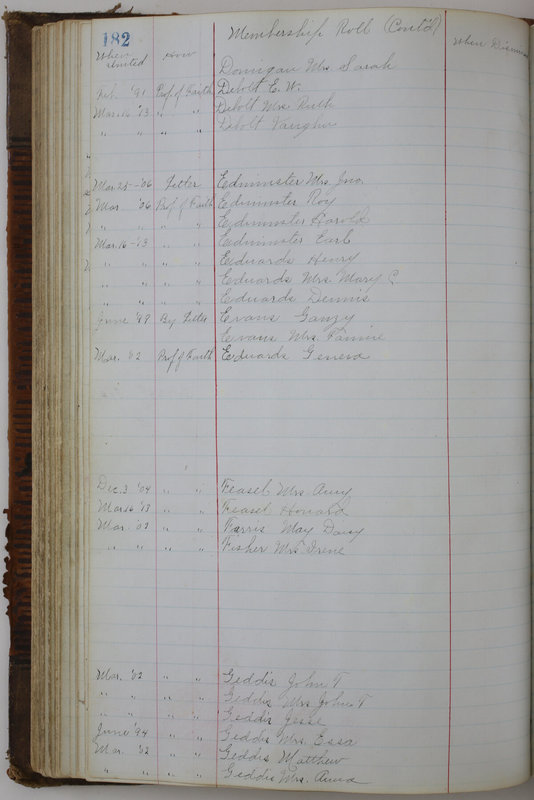 182 Membership Roll (Cont'd)
When united How When
Donigan Mrs. Sarah
Feb. '91 Prof. of Faith Debolt E. W.
Mar. 16 '13 " " Debolt Mrs. Ruth
" " " " Debolt Vaughn
Mar. 25 - '06 Letter Edminster Mrs. Jno.
Mar. '06 Prof. of Faith Edminster Roy
" " " " Edminster Harold
Mar. 16 - '13 " " Edminster Earl
" " " " Edwards Henry
" " " " Edwards Mrs. Mary C.
" " " " Edwards Dennis
June '87 By Letter Evans
Evans Mrs. Fannie
Mar. '02 Prof. of Faith Edwards Geneva
Dec. 3 '04 " " Feasel Mrs. Amy
Mar. 16 '13 " " Feasel Howard
Mar. '02 " " Farris May Daisy
" " " " Fisher Mrs. Irene
Mar. '02 " " Geddis John T
" " " " Geddis Mrs. John T
" " " " Geddis Jesse
June '94 " " Geddis Mrs. Essa
Mar. '02 " " Geddis Matthew
" " " " Geddis Mrs. Anna